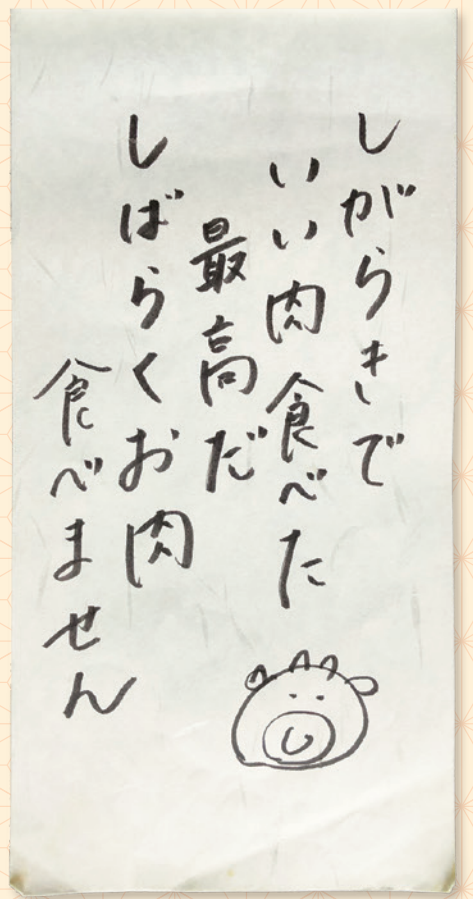 しがらきで
いい肉食べた
最高だ
しばらくお肉
食べません